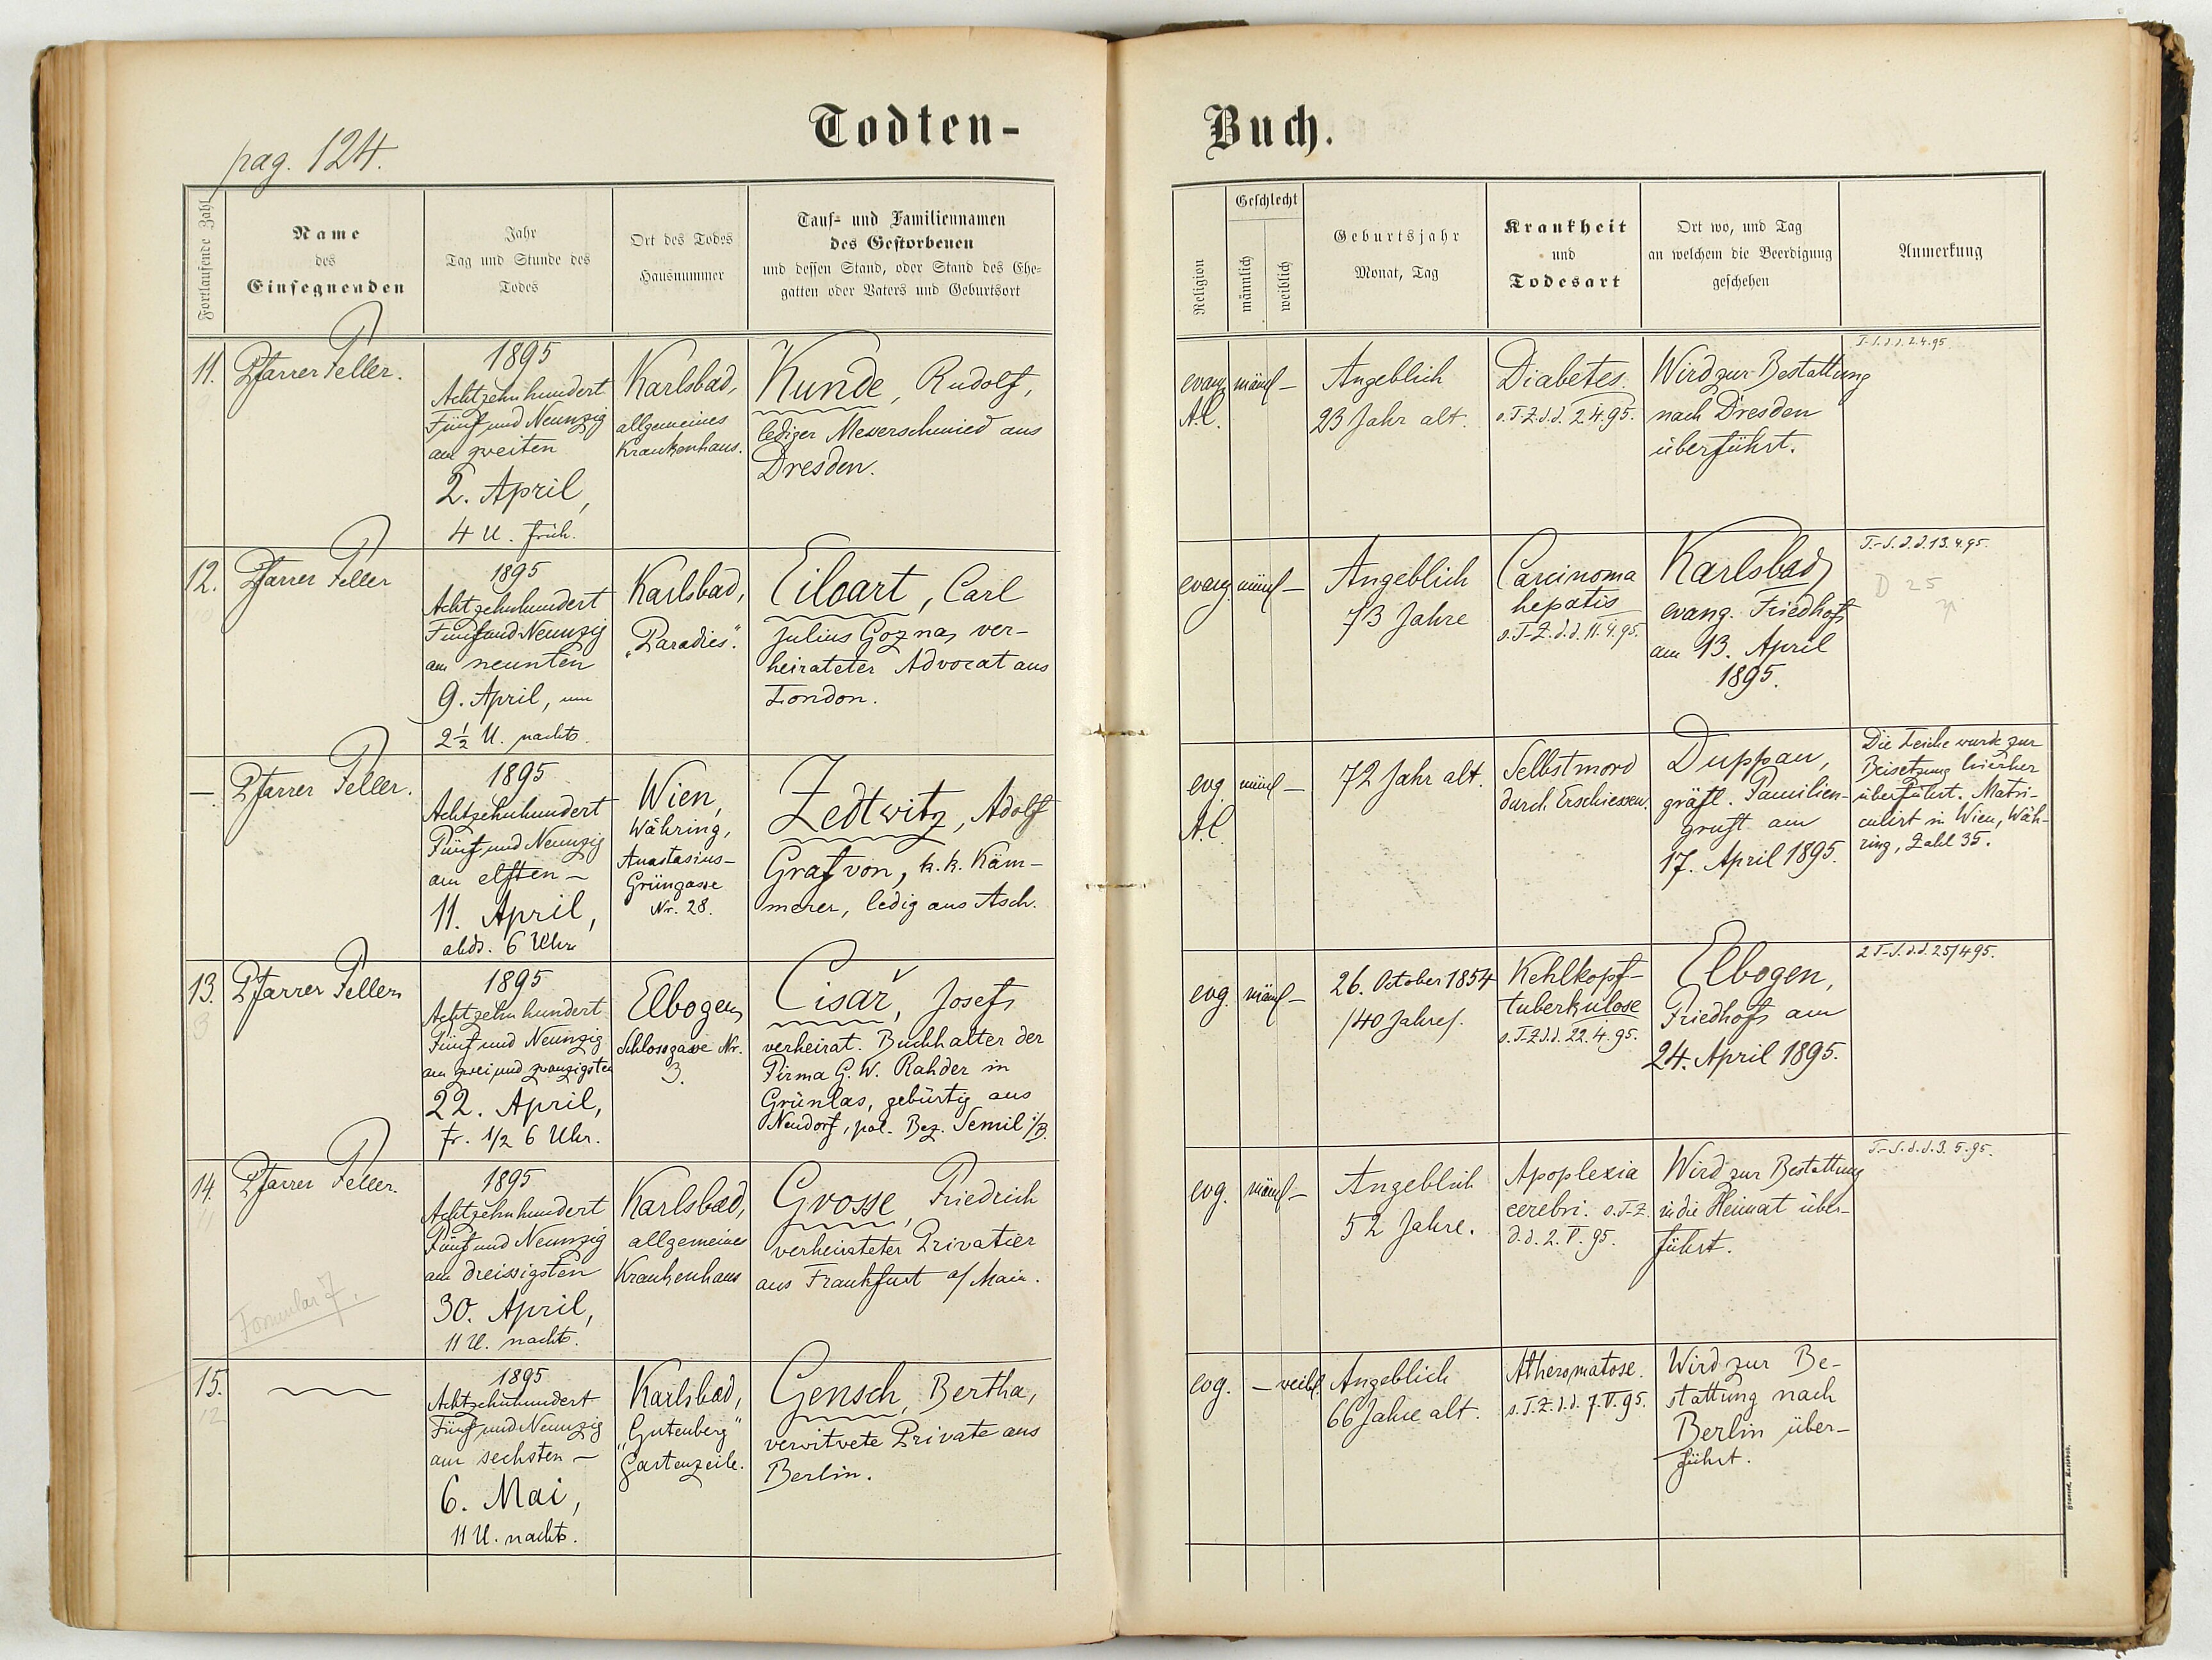 pag. 124.
Todten-
Buch.
Fortlaufende Zahl
Name
des
Einsegnenden
Jahr
Tag und Stunde des
Todes
Ort des Todes
Hausnummer
Tauf- und Familiennamen
des Gestorbenen
und dessen Stand, oder Stand des Ehe-
gatten oder Vaters und Geburtsort
Religion
Geschlecht
männlich
weiblich
Geburtsjahr
Monat, Tag
Krankheit
und
Todesart
Ort wo, und Tag
an welchem die Beerdigung
geschehen
Anmerkung
11.
Pfarrer Feller.
1895
Achtzehnhundert
Fünf und Neunzig
am zweiten
2. April,
4 U. früh.
Karlsbad,
allgemeines
Krankenhaus.
Kunde, Rudolf,
lediger Messerschmied aus
Dresden.
evang.
A.C.
männl –
Angeblich
23 Jahr alt.
Diabetes.
s. T-Z. d. d. 2.4.95.
Wird zur Bestattung
nach Dresden
überführt.
T-S. d. d. 2.4.95.
12.
Pfarrer Feller
1895
Achtzehnhundert
Fünf und Neunzig
am neunten
9. April, um
2 1/2 U. nachts.
Karlsbad,
"Paradies".
Eiloart, Carl
Julius Gozna, ver-
heirateter Advocat aus
London.
evang.
männl –
Angeblich
73 Jahre
Carcinoma
hepatis
s. T-Z. d. d. 11.4.95.
Karlsbad,
evang. Friedhof
am 13. April
1895.
T.-S. d. d. 13.4.95.
D 25
–.
Pfarrer Feller.
1895
Achtzehnhundert
Fünf und Neunzig
am elften –
11. April,
abds. 6 Uhr
Wien,
Währing,
Anastasius-
Grüngasse
Nr. 28.
Zedtwitz, Adolf
Graf von, k. k. Käm-
merer, ledig aus Asch.
evg.
A.C.
männl –
72 Jahr alt.
Selbstmord
durch Erschiessen.
Duppau,
gräfl. Familien-
gruft am
17. April 1895.
Die Leiche wurde zur
Beisetzung hierher
überführt. Matri-
culirt in Wien, Wäh-
ring, Zahl 35.
13.
3
Pfarrer Feller
1895
Achtzehnhundert
Fünf und Neunzig
am zwei und zwanzigsten
22. April,
fr. 1/2 6 Uhr.
Elbogen,
Schlossgasse Nr.
3.
Cisař, Josef,
verheirat. Buchhalter der
Firma G. W. Rahder in
Grünlas, gebürtig aus
Neudorf, pol. Bez. Semil i/B.
evg.
männl –
26. October 1854
/40 Jahre/.
Kehlkopf-
tuberkulose
s. T-Z d. d. 22.4.95.
Elbogen,
Friedhof am
24. April 1895.
2 T-S. d. d. 25/4 95.
14.
11
Pfarrer Feller.
Formular 7.
1895
Achtzehnhundert
Fünf und Neunzig
am dreissigsten
30. April,
11 U. nachts.
Karlsbad,
allgemeines
Krankenhaus
Grosse, Friedrich
verheirateter Privatier
aus Frankfurt a/ Main.
evg.
männl –
Angeblich
52 Jahre.
Apoplexia
cerebri. s. T-Z.
d. d. 2. V. 95.
Wird zur Bestattung
in die Heimat über-
führt.
T-S. d. d. 3. 5. 95.
15.
12
1895
Achtzehnhundert
Fünf und Neunzig
am sechsten –
6. Mai,
11 U. nachts.
Karlsbad,
"Gutenberg"
Gartenzeile.
Gensch, Bertha,
verwitvete Private aus
Berlin.
evg.
– weibl.
Angeblich
66 Jahre alt.
Atheromatose.
s. T. Z. d. d. 7. V. 95.
Wird zur Be-
stattung nach
Berlin über-
führt.